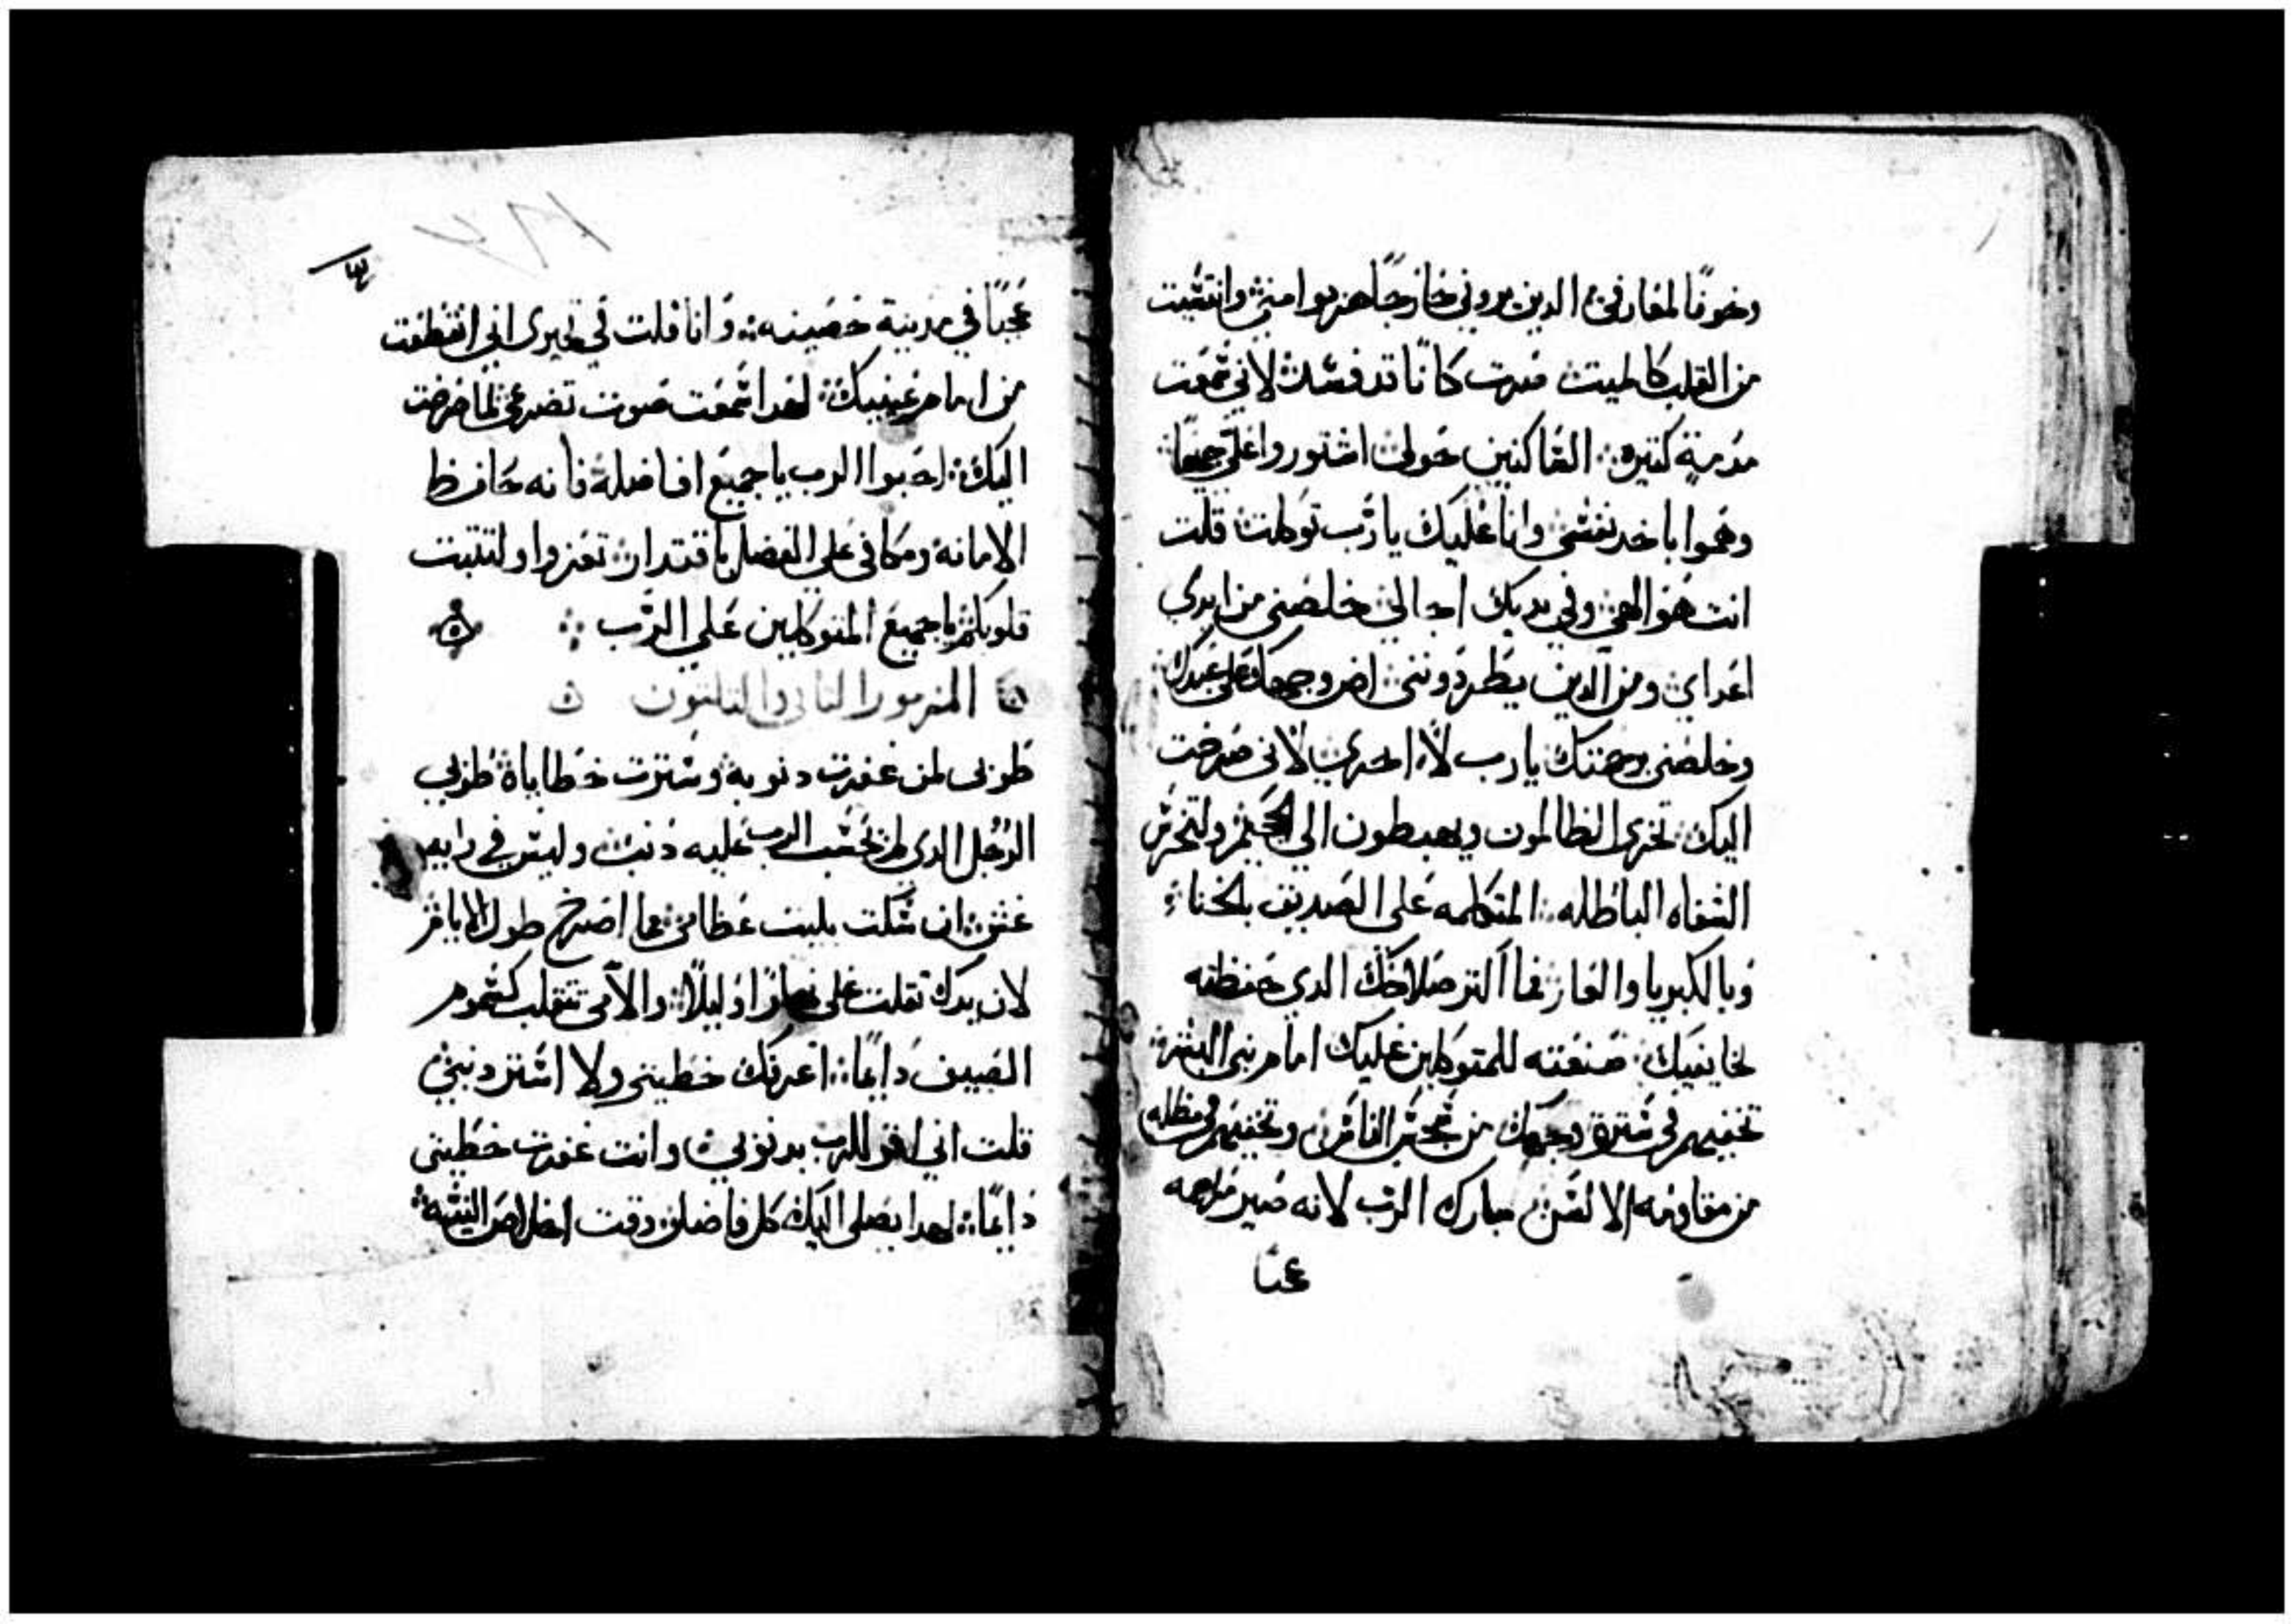 وخوفًا لمعارفي الدين يروني خارجًا هربوا مني وانتسيت
من القلب كالميت صرت كاناء قد فسد لاني سمعت
مدمة كتيره الساكنين حولي اشتوروا علي جميعا
وهموا باخد نفسي وانا عليك يا رب توكلت قلت
انت هو الهي وفي يديك اجالي خلصني من ايدي
اعداي ومن الدين يطردونني اضي وجهك علي عبدك
وخلصني برحمتك يا رب لا اخزي لاني صرخت
اليك تخزي الظالمون ويهبطون الي الجحيم ولتخرس
الشفاه الباطله المتكلمه علي الصديق
وبالكبريا والعار فما اكتر صلاحك الدي حفظته
لخايفيك صنعته للمتوكلين عليك امام بني البشر
تخفيهم في سترة وجهك من سجس الناس وتخفيهم في مظله
من مقاومة الالسن مبارك الرب لانه صير مراحمه
عجبًا
عجبًا في مدينة حصينه وانا قلت في تحيري اني انقطعت
من امام عينيك لهدا سمعت صوت تضرعي لما صرخت
اليك احبوا الرب يا جميع افاضله فانه حافظ
الامانه ومكافي علي الفضل باقتدار تعزوا ولتتبت
قلوبكم يا جميع المتوكلين علي الرب
المزمور التاني والتلتون
طوبي لمن غفرت دنوبه وسترت خطاياه طوبي
الرجل الدي لم يحسب الرب عليه دنب وليس في رايه
غش ان سكت بليت عظامي مما اصرخ طول الايام
لان يدك تقلت علي نهارًا وليلًا والامي تتقلب كسموم
الصيف دايمًا اعرفك خطيتي ولا استر دنبي
قلت اني اقر للرب بدنوبي وانت غفرت خطيتي
دايمًا لهدا يصلي اليك كل فاضل في وقت